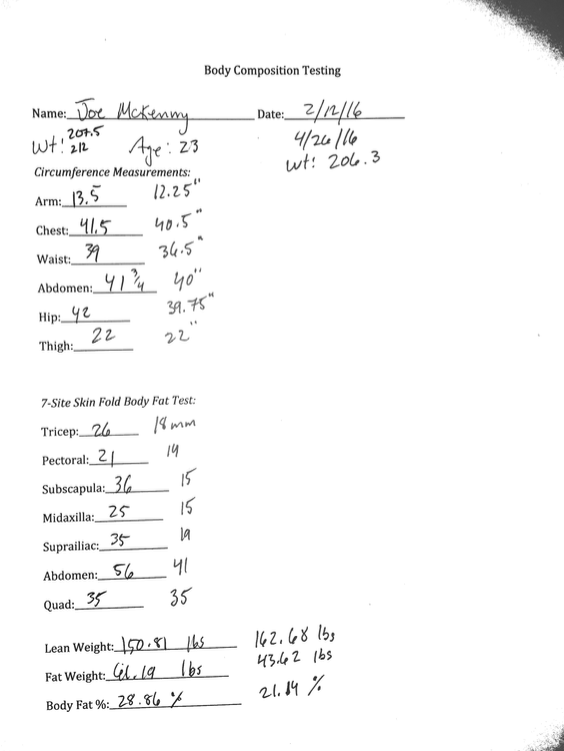 Body Composition Testing
Name: Joe McKenny Date: 2/12/16
207.5
Wt: 212 Age: 23 4/26/16
wt: 206.3
Circumference Measurements:
Arm: 13.5 12.25"
Chest: 41.5 40.5"
Waist: 39 36.5"
Abdomen: 41 3/4 40"
Hip: 42 39.75"
Thigh: 22 22"
7-Site Skin Fold Body Fat Test:
Tricep: 26 18 mm
Pectoral: 21 14
Subscapula: 36 15
Midaxilla: 25 15
Suprailiac: 35 19
Abdomen: 56 41
Quad: 35 35
Lean Weight: 150.81 lbs 162.68 lbs
Fat Weight: 61.19 lbs 43.62 lbs
Body Fat %: 28.86 % 21.14 %